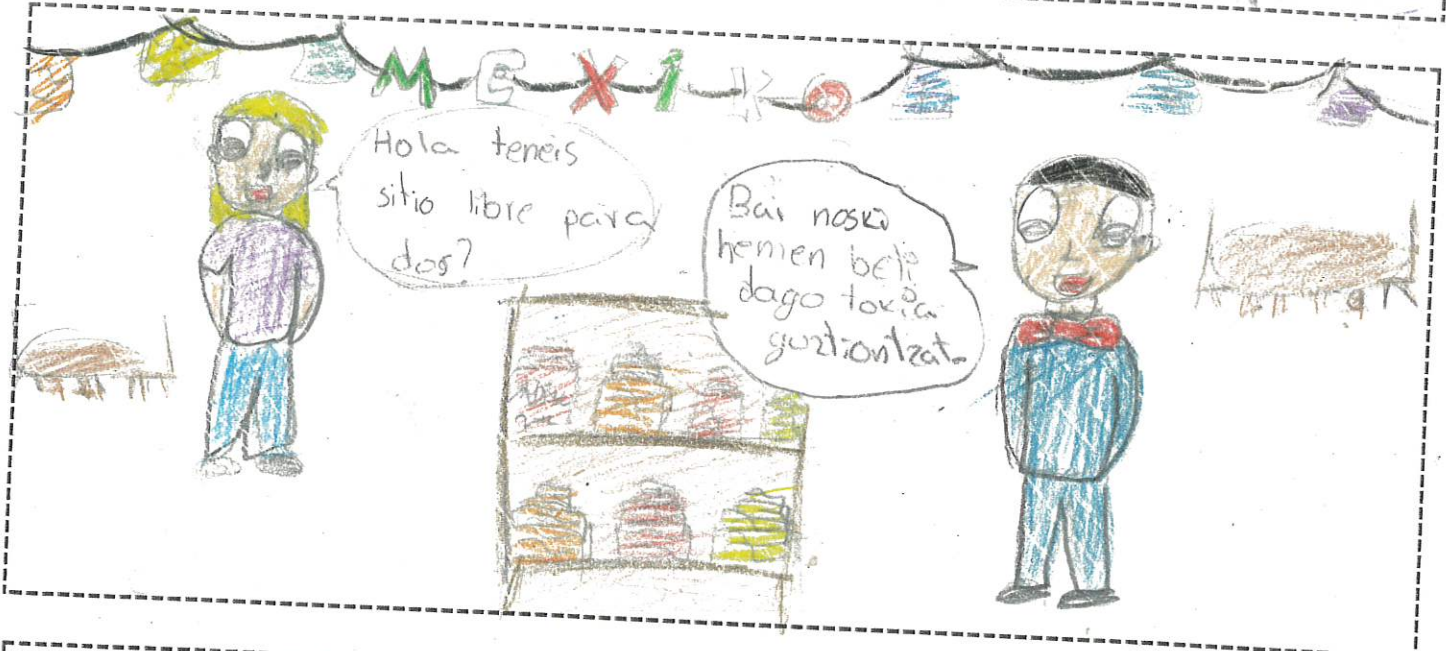 MEXIKO
Hola teneis
sitio libre para
dos?
Bai noski
hemen beti
dago tokia
guztiontzat.